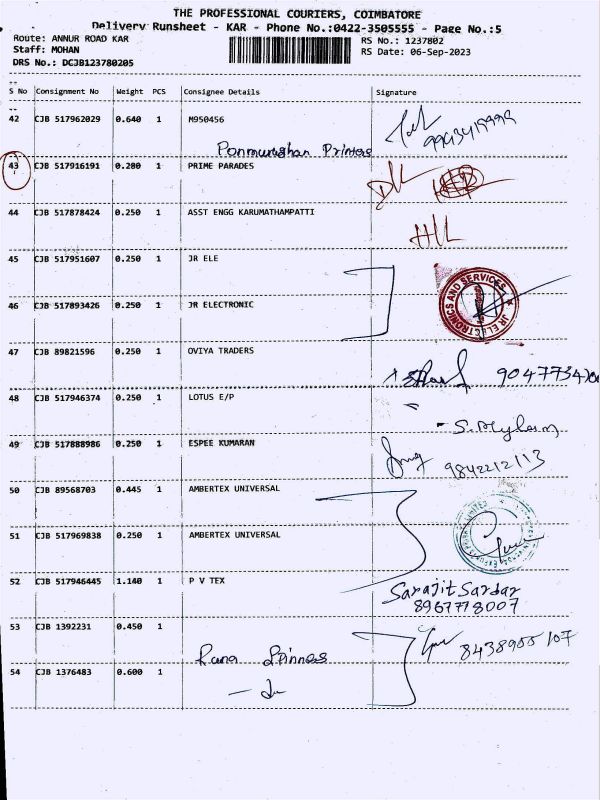 THE PROFESSIONAL COURIERS, COIMBATORE
Delivery Runsheet - KAR - Phone No.:0422-3505555 - Page No.:5
Route: ANNUR ROAD KAR RS No.: 1237802
Staff: MOHAN RS Date: 06-Sep-2023
DRS No.: DCJB123780205
S No Consignment No Weight PCS Consignee Details Signature
42 CJB 517962029 0.640 1 M950456
Ponmurughan Printers
43 CJB 517916191 0.280 1 PRIME PARADES
44 CJB 517878424 0.250 1 ASST ENGG KARUMATHAMPATTI
45 CJB 517951607 0.250 1 JR ELE
46 CJB 517893426 0.250 1 JR ELECTRONIC
JR ELECTRONICS AND SERVICES
47 CJB 89821596 0.250 1 OVIYA TRADERS
48 CJB 517946374 0.250 1 LOTUS E/P
49 CJB 517888986 0.250 1 ESPEE KUMARAN
9842212113
50 CJB 89568703 0.445 1 AMBERTEX UNIVERSAL
51 CJB 517969838 0.250 1 AMBERTEX UNIVERSAL
52 CJB 517946445 1.140 1 P V TEX
Sarajit Sardar
8967778007
53 CJB 1392231 0.450 1
8438955107
54 CJB 1376483 0.600 1